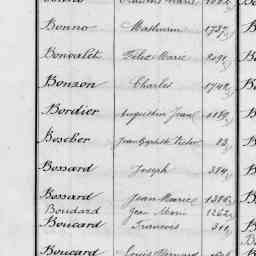 Bonno Mathurin 1757
Bonvalet Félix Marie 2091
Bonzon Charles 1742
Bordier Augustin Jean
Boscher Jean Baptiste Victor 83
Bossard Joseph 384
Bossard Jean Marie 1386
Boudard Jean Marie 1262
Boucard Francois 311
Boucard Louis Bernard